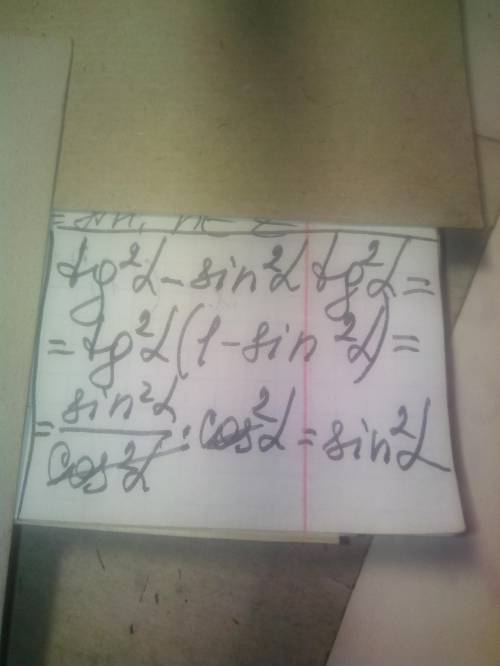 tg²α - sin²α tg²α =
= tg²α(1 - sin²α) =
= sin²α/cos²α · cos²α = sin²α